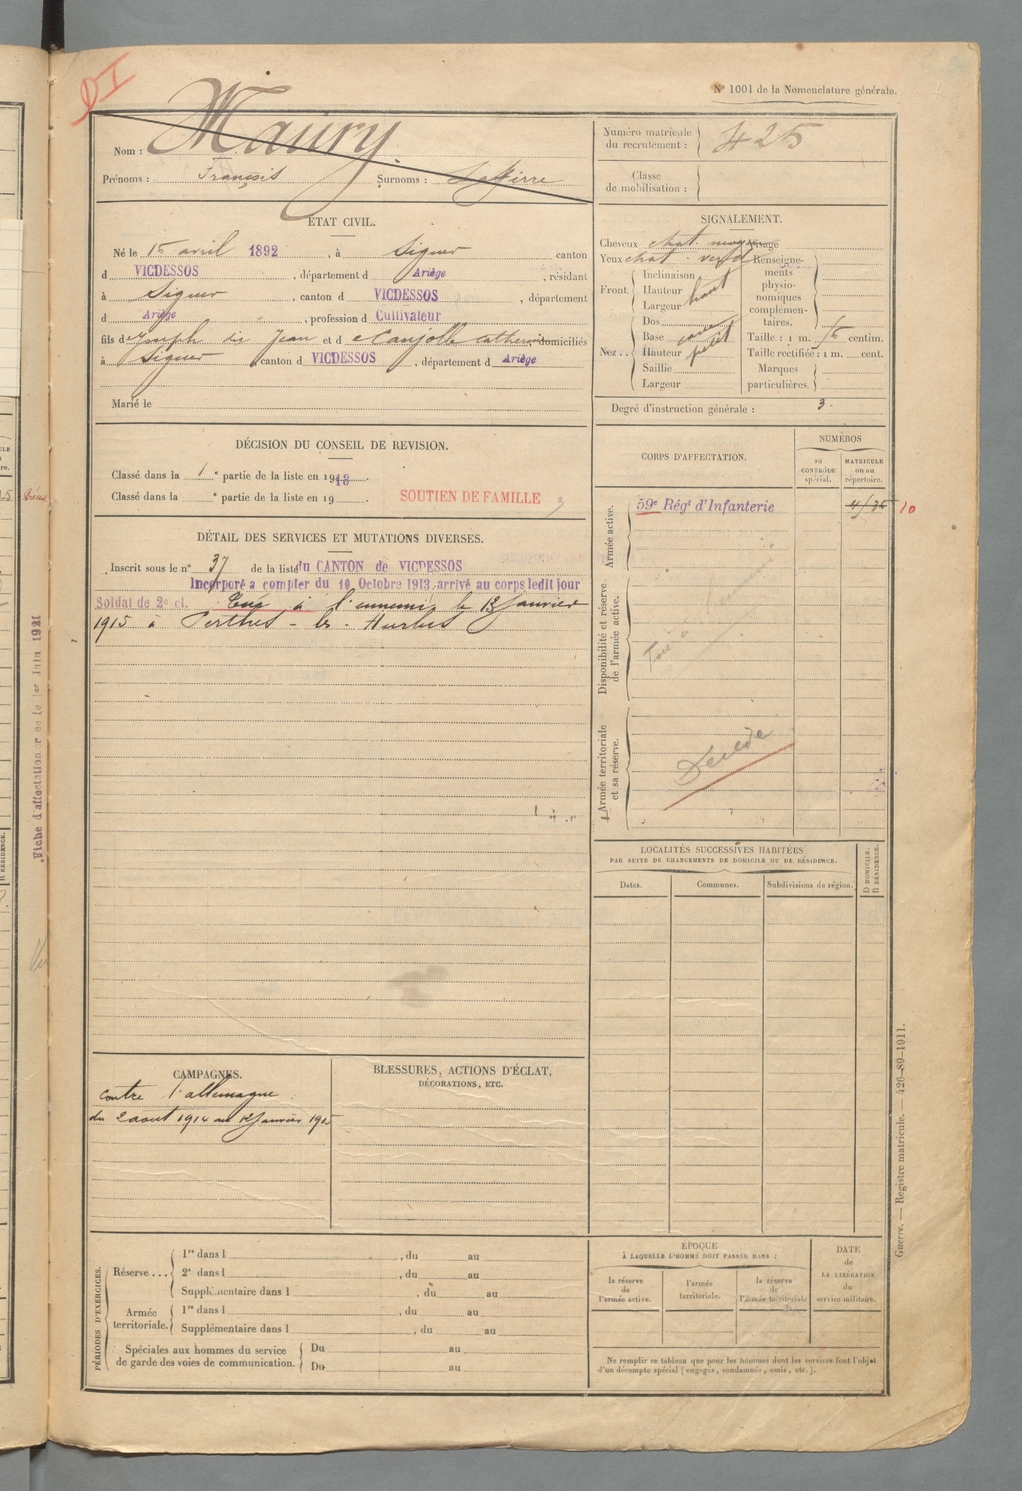 DI
N° 1001 de la Nomenclature générale.
Nom : Maury
Prénoms : François Surnoms :
Numéro matricule du recrutement : 425
Classe de mobilisation :
ÉTAT CIVIL.
Né le 15 avril 1892, à Siguer canton
d VICDESSOS, département d Ariège, résidant
à Siguer, canton d VICDESSOS, département
d Ariège, profession d Cultivateur
fils d Jean et d domiciliés
à Siguer canton d VICDESSOS, département d Ariège
Marié le
SIGNALEMENT.
Cheveux chat. Visage
Yeux chat. Renseignements physionomiques complémentaires.
Front. Inclinaison
Hauteur haut
Largeur
Nez.. Dos
Base
Hauteur petit
Saillie
Largeur
Taille : 1 m. centim.
Taille rectifiée : 1 m. cent.
Marques particulières.
Degré d'instruction générale : 3
DÉCISION DU CONSEIL DE REVISION.
Classé dans la 1e partie de la liste en 1913
Classé dans la e partie de la liste en 19
SOUTIEN DE FAMILLE
DÉTAIL DES SERVICES ET MUTATIONS DIVERSES.
Inscrit sous le n° 37 de la liste du CANTON de VICDESSOS
Incorporé a compter du 10 Octobre 1913, arrivé au corps ledit jour
Soldat de 2e cl. Tué à l'ennemi le 12 Janvier
1915 à Perthes-les-Hurlus
CORPS D'AFFECTATION.
NUMÉROS
au CONTRÔLE spécial.
MATRICULE ou au répertoire.
Armée active.
59e Régt d'Infanterie
10
Disponibilité et réserve de l'armée active.
Armée territoriale et sa réserve.
LOCALITÉS SUCCESSIVES HABITÉES
PAR SUITE DE CHANGEMENTS DE DOMICILE OU DE RÉSIDENCE.
Dates.
Communes.
Subdivisions de région.
D DOMICILE.
R RÉSIDENCE.
CAMPAGNES.
contre l'allemagne
du 2 aout 1914 au 12 Janvier 1915
BLESSURES, ACTIONS D'ÉCLAT,
DÉCORATIONS, ETC.
PÉRIODES D'EXERCICES.
Réserve... 1re dans l, du au
2e dans l, du au
Supplémentaire dans l, du au
Armée territoriale. 1re dans l, du au
Supplémentaire dans l, du au
Spéciales aux hommes du service de garde des voies de communication. Du au
Du au
ÉPOQUE
À LAQUELLE L'HOMME DOIT PASSER DANS :
la réserve de l'armée active.
l'armée territoriale.
la réserve de l'armée territoriale
DATE de LA LIBÉRATION du service militaire.
Ne remplir ce tableau que pour les hommes dont les services font l'objet
d'un décompte spécial (engagés, condamnés, omis, etc.).
Guerre. — Registre matricule. — 426-89-1911.
Fiche d'affectation
1er Juin 1921